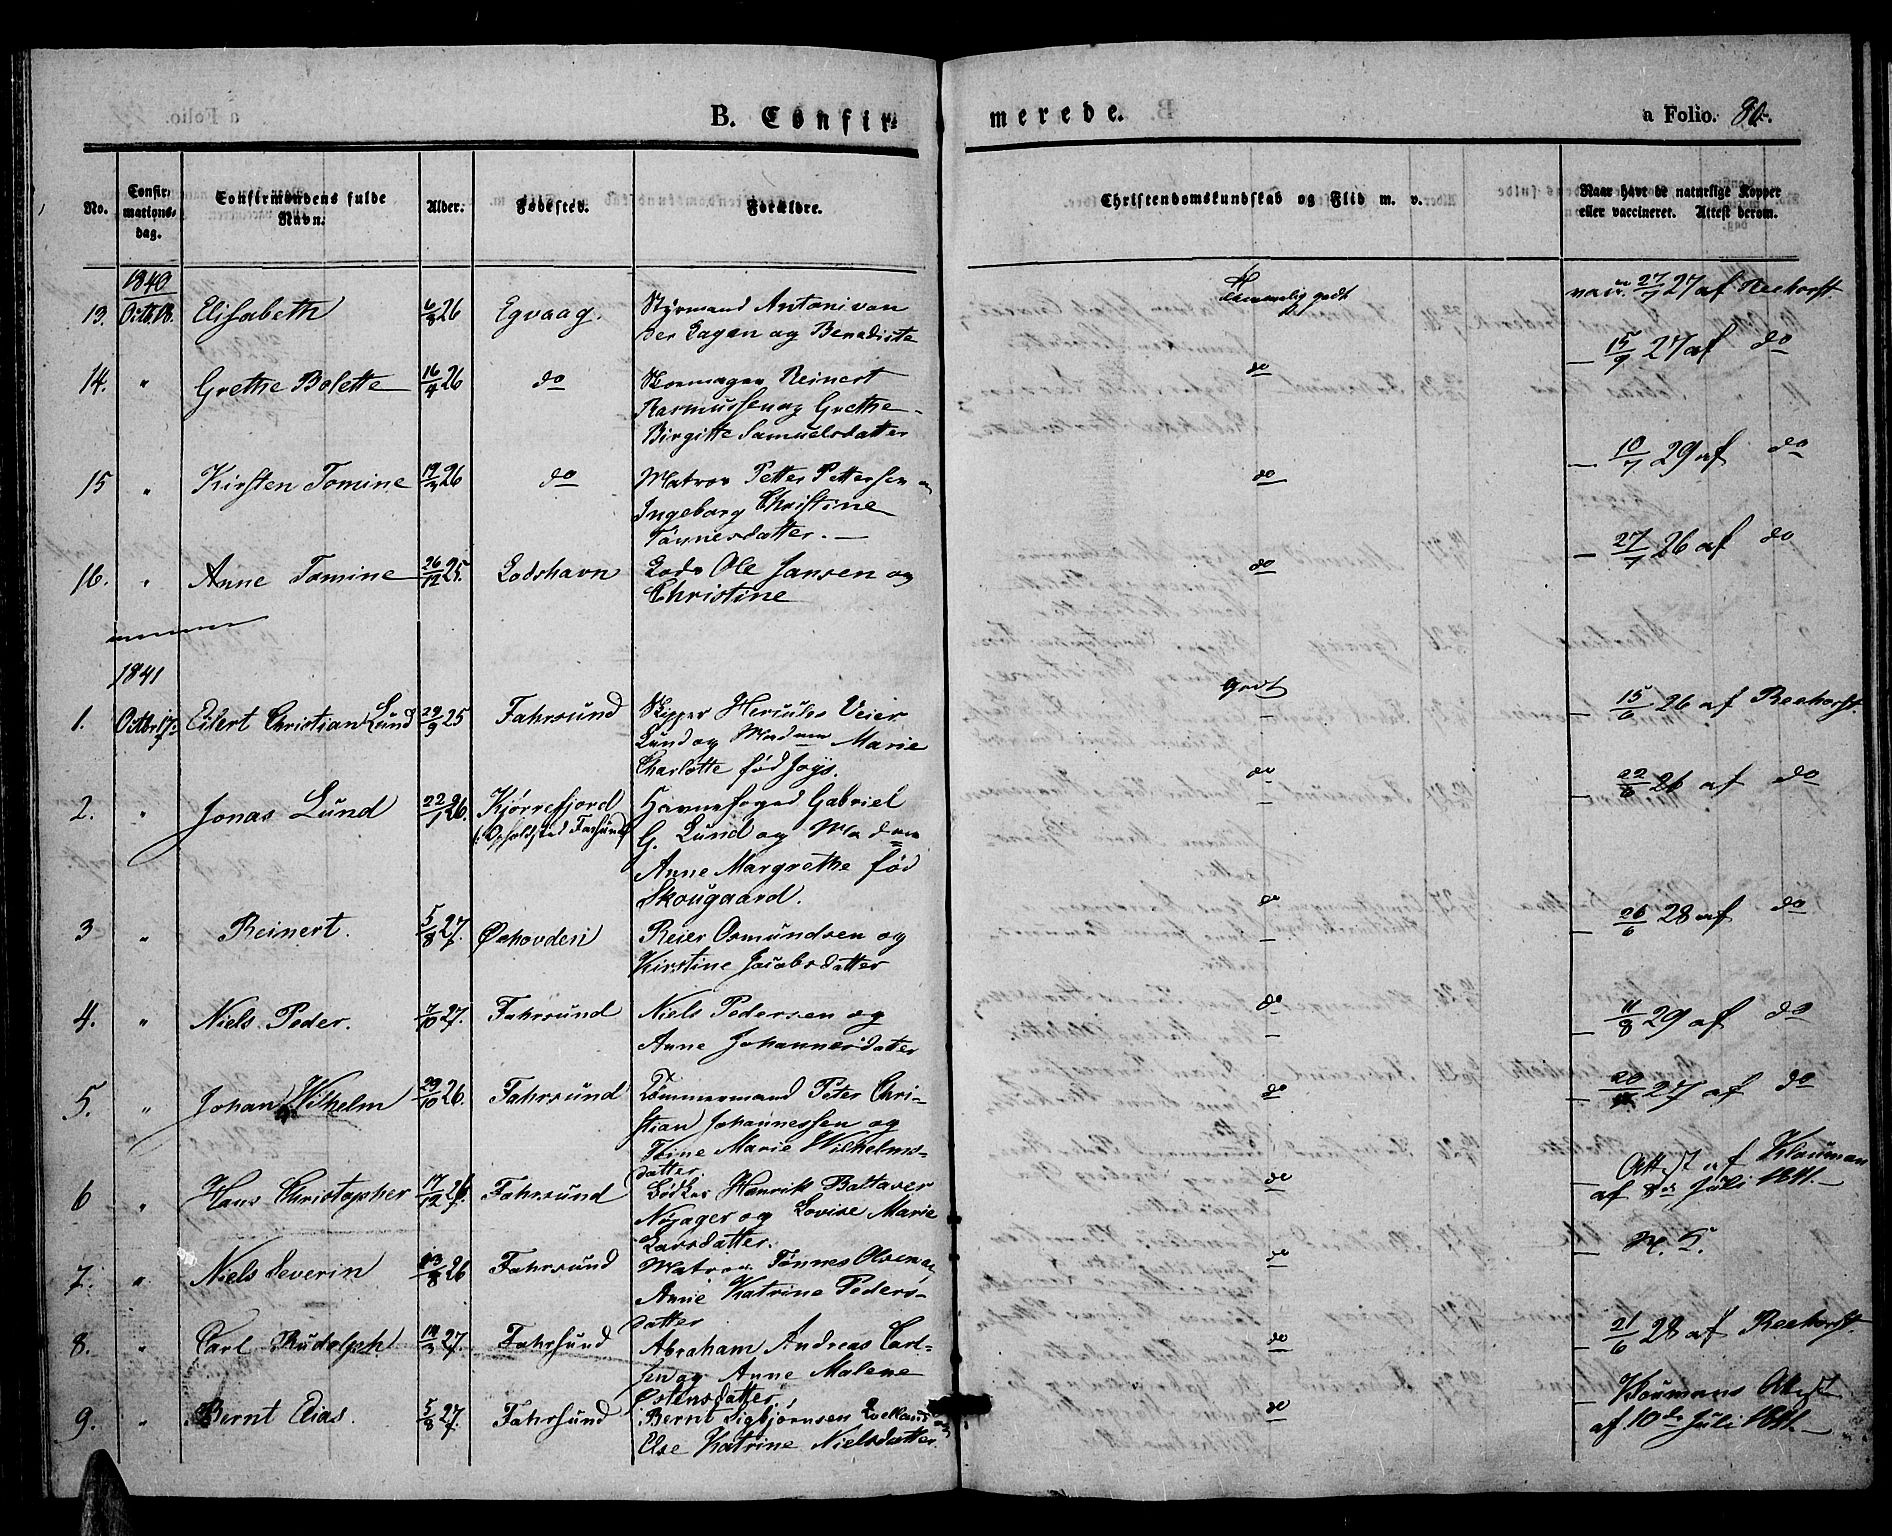 B. Confir=
merede.
a Folio. 86.
No.
Confir=
mations=
dag.
Confirmandens fulde
Navn.
Alder.
Fødested.
Forældre.
Christendomskundskab og Flid m. v.
Naar havt de naturlige Kopper
eller vaccineret. Attest derom.
1840
13. Octb. 18. Elisabeth 6/3 26 Egvaag. Styrmand Antoni van
der Lagen og Benedicte
Temmelig godt
vacc. 27/7 27 af Reehorst
14. " Grethe Bolette 16/4 26 do Skomager Reinert
Rasmussen og Grethe
Birgitte Samuelsdatter
do
— 15/9 27 af do
15 " Kirsten Tomine 19/3 26 do Matros Petter Pettersen
Ingeborg Christine
Tønnesdatter. —
do
— 10/7 29 af do
16. " Anne Tomine 26/12 25. Lodshavn Lods Ole Jansen og
Christine
do
— 27/7 26 af do
1841
1. Octbr 17 Eilert Christian Lund 29/9 25 Fahrsund Skipper Herculus Veier
Lund og Madam Marie
Charlotte fød Joys.
Godt
— 15/6 26 af Reehorst.
2. " Jonas Lund 22/1 26. Kjørrefjord Havnefoged Gabriel
(Opholdsted Farsund) G. Lund og Madam
Anne Margrethe fød
Skougaard.
do
— 22/6 26 af do
3 " Reinert. 5/8 27. Øshovden Reier Osmundsen og
Kirstine Jacobsdatter
do
— 26/6 28 af do
4. " Niels Peder. 7/10 27. Fahrsund Niels Pedersen og
Anne Johannesdatter
do
— 11/8 29 af do
5. " Johan Wilhelm 29/10 26. Fahrsund Tømmermand Peter Chri=
stian Johannessen og
Trine Marie Wilhelms=
datter.
do
— 27 af do
6 " Hans Christopher 17/12 26. Fahrsund Bødker Henrik Baltaser
Nøjager og Lovise Marie
Larsdatter.
do
— Attest af Klouman
af 8de Juli 1841. —
7. " Niels Severin 13/8 26 Fahrsund Matros Tønnes Olsen og
Anne Katrine Peders=
datter
do
—
8. " Carl Rudolph 27. Fahrsund Abraham Andreas Carl=
sen og Anne Malene
Østensdatter
do
— 21/6 28 af Reehorst.
9. " Bernt Elias. 5/8 27. Fahrsund Bernt Sigbjørnsen
Else Katrine Nielsdatter.
do
— Kloumans Attest
af 10de Juli 1841. —